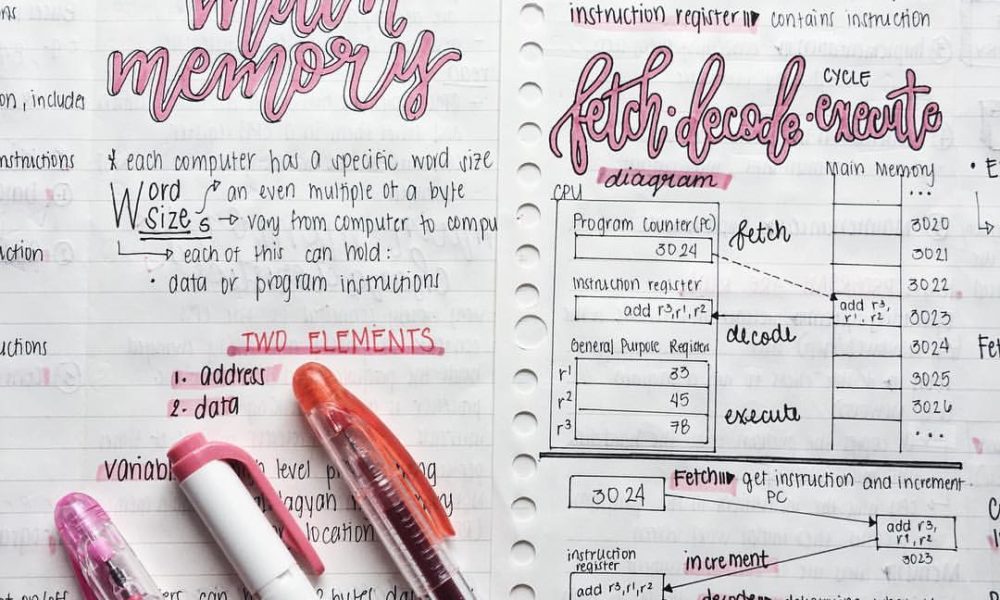 main
memory
ons
on, includes
nstructions
* each computer has a specific word size
Word Sizes
an even multiple of a byte
vary from computer to compu
ction
each of this can hold:
• data or program instructions
uctions
TWO ELEMENTS
1. address
2. data
Variab
level
location
instruction register contains instruction
fetch · decode · execute
CYCLE
diagram
CPU
Program Counter (PC)
3024
fetch
Instruction register
add r3,r1,r2
decode
General Purpose Registers
r1 33
r2 45
execute
r3 78
Main Memory
...
3020
3021
3022
add r3, r1, r2
3023
3024
3025
3026
...
Fetch get instruction and increment
PC
3024
add r3, r1, r2
3023
instruction register
increment
add r3,r1,r2
• E
Fet